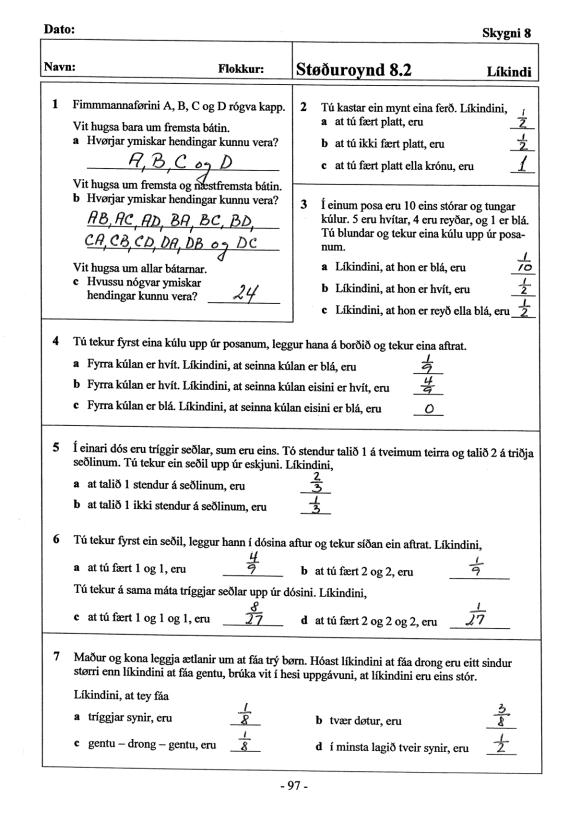 Dato:
Skygni 8
Navn: Flokkur: Støðuroynd 8.2 Líkindi
1 Fimmmannaførini A, B, C og D rógva kapp.
Vit hugsa bara um fremsta bátin.
a Hvørjar ymiskar hendingar kunnu vera?
A, B, C og D
Vit hugsa um fremsta og næstfremsta bátin.
b Hvørjar ymiskar hendingar kunnu vera?
AB, AC, AD, BA, BC, BD,
CA, CB, CD, DA, DB og DC
Vit hugsa um allar bátarnar.
c Hvussu nógvar ymiskar
hendingar kunnu vera? 24
2 Tú kastar ein mynt eina ferð. Líkindini,
a at tú fært platt, eru 1/2
b at tú ikki fært platt, eru 1/2
c at tú fært platt ella krónu, eru 1
3 Í einum posa eru 10 eins stórar og tungar
kúlur. 5 eru hvítar, 4 eru reyðar, og 1 er blá.
Tú blundar og tekur eina kúlu upp úr posa-
num.
a Líkindini, at hon er blá, eru 1/10
b Líkindini, at hon er hvít, eru 1/2
c Líkindini, at hon er reyð ella blá, eru 1/2
4 Tú tekur fyrst eina kúlu upp úr posanum, leggur hana á borðið og tekur eina aftrat.
a Fyrra kúlan er hvít. Líkindini, at seinna kúlan er blá, eru 1/9
b Fyrra kúlan er hvít. Líkindini, at seinna kúlan eisini er hvít, eru 4/9
c Fyrra kúlan er blá. Líkindini, at seinna kúlan eisini er blá, eru 0
5 Í einari dós eru tríggir seðlar, sum eru eins. Tó stendur talið 1 á tveimum teirra og talið 2 á triðja
seðlinum. Tú tekur ein seðil upp úr eskjuni. Líkindini,
a at talið 1 stendur á seðlinum, eru 2/3
b at talið 1 ikki stendur á seðlinum, eru 1/3
6 Tú tekur fyrst ein seðil, leggur hann í dósina aftur og tekur síðan ein aftrat. Líkindini,
a at tú fært 1 og 1, eru 4/9 b at tú fært 2 og 2, eru 1/9
Tú tekur á sama máta tríggjar seðlar upp úr dósini. Líkindini,
c at tú fært 1 og 1 og 1, eru 8/27 d at tú fært 2 og 2 og 2, eru 1/27
7 Maður og kona leggja ætlanir um at fáa trý børn. Hóast líkindini at fáa drong eru eitt sindur
størri enn líkindini at fáa gentu, brúka vit í hesi uppgávuni, at líkindini eru eins stór.
Líkindini, at tey fáa
a tríggjar synir, eru 1/8 b tvær døtur, eru 3/8
c gentu – drong – gentu, eru 1/8 d í minsta lagið tveir synir, eru 1/2
- 97 -